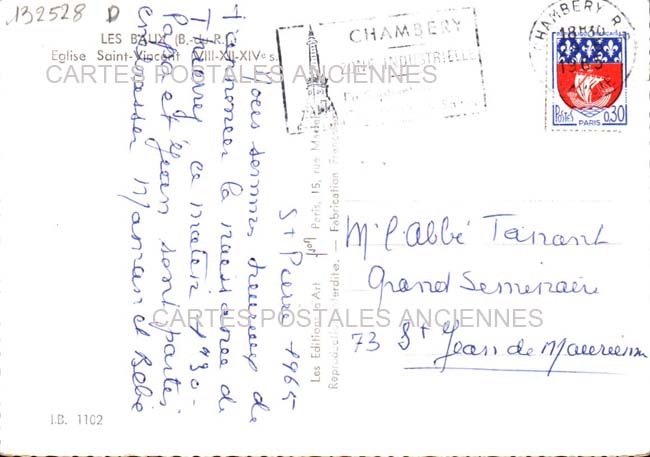 132528 D
LES BAUX (B.-d.-R.)
Eglise Saint-Vincent VIII-XII-XIVe s.
CARTES POSTALES ANCIENNES
CHAMBERY
ZONE INDUSTRIELLE
CHAMBERY R.
18H30
1965
POSTES
PARIS
0,30
St Pierre 1965
Nous sommes heureux de
t'annoncer la naissance de
Thierry ce matin 1h30.
Papi et Jean sont partis
embrasser Maman et Bébé
Les Editions d'Art Yvon Paris, 15, rue Martel
Reproduction interdite. — Fabrication Française
Mr l'Abbé Tanant
Grand Seminaire
73 St Jean de Maurienne
CARTES POSTALES ANCIENNES
I.B. 1102